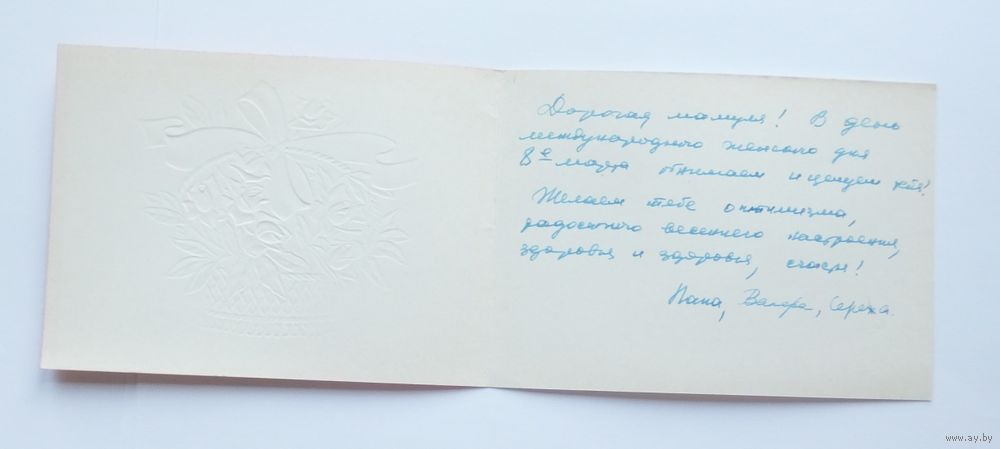 Дорогая мамуля! В день
международного женского дня
8е марта обнимаем и целуем тебя!
Желаем тебе оптимизма,
радостного весеннего настроения,
здоровья и здоровья, счастья!
Папа, Валера, Сережа.
www.ay.by